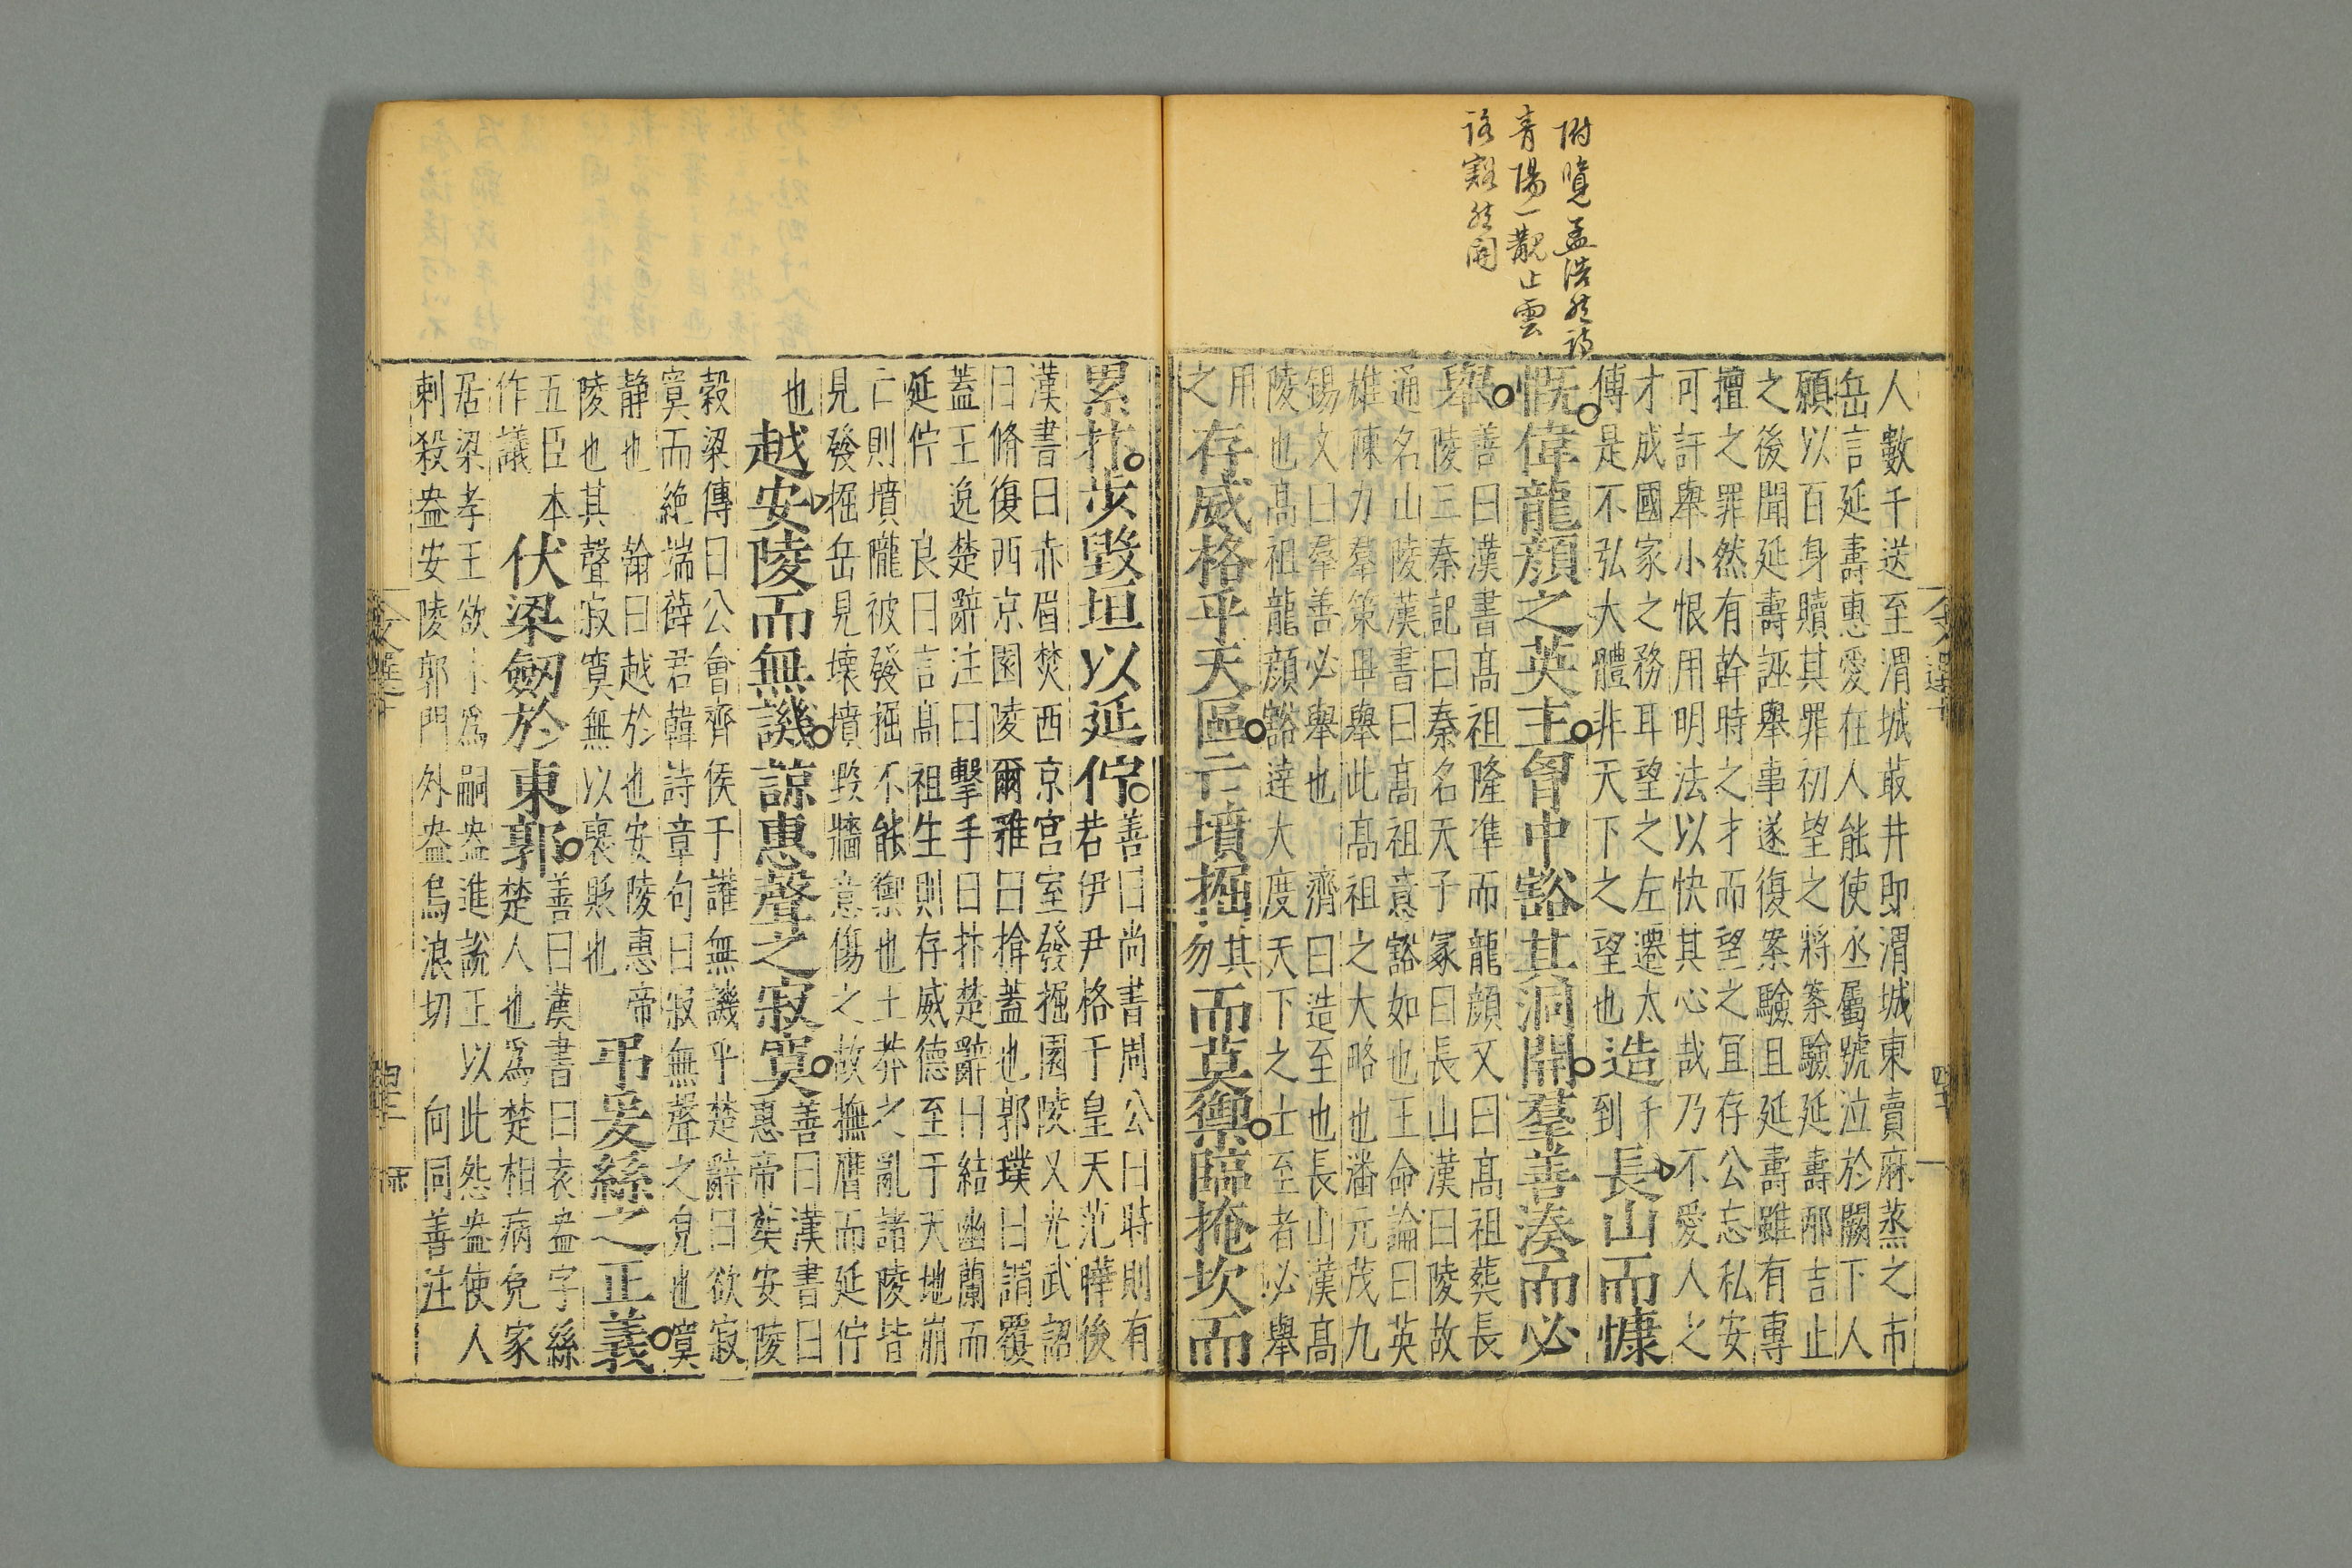 附覽孟浩然詩
青陽一覯止雲
路豁然開
人數千送至渭城菆井即渭城東賣麻蒸之市
岳言延壽惠愛在人能使丞屬號泣於闕下人
願以百身贖其罪初望之將案驗延壽邴吉止
之後聞延壽誣舉事遂復案驗且延壽雖有專
擅之罪然有幹時之才而望之宜存公忘私安
可訐舉小恨用明法以快其心哉乃不愛人之
才成國家之務耳望之左遷太
傅是不弘大體非天下之望也
造
千
到
長山而慷
慨偉龍顏之英主胷中豁其洞開羣善湊而必
舉
善曰漢書高祖隆準而龍顏又曰高祖葬長
陵三秦記曰秦名天子冢曰長山漢曰陵故
通名山陵漢書曰高祖意豁如也王命論曰英
雄陳力羣策畢舉此高祖之大略也潘元茂九
錫文曰羣善必舉也
濟曰造至也長山漢高
陵也高祖龍顏豁達大度天下之士至者必舉
用
之
存威格乎天區亡墳掘
其
勿
而莫禦臨掩坎而
累抃步毀垣以延佇
善曰尚書周公曰時則有
若伊尹格于皇天范曄後
漢書曰赤眉焚西京宮室發掘園陵又光武詔
曰脩復西京園陵爾雅曰揜蓋也郭璞曰謂覆
蓋王逸楚辭注曰擊手曰抃楚辭曰結幽蘭而
延佇
良曰言高祖生則存威德至于天地崩
亡則墳隴被發掘不能禦也王莽之亂諸陵皆
見發掘岳見壞墳毀牆意傷之故撫膺而延佇
也
越安陵而無譏諒惠聲之寂寞
善曰漢書曰
惠帝葬安陵
穀梁傳曰公會齊侯于讙無譏乎楚辭曰欲寂
寞而絕端薛君韓詩章句曰寂無聲之皃也寞
靜也
翰曰越於也安陵惠帝
陵也其聲寂寞無以褒貶也
弔爰絲之正義
五臣本
作議
伏梁劒於東郭
善曰漢書曰袁盎字絲
楚人也為楚相病免家
居梁孝王欲求為嗣盎進說王以此怨盎使人
刺殺盎安陵郭門外盎烏浪切
向同善注